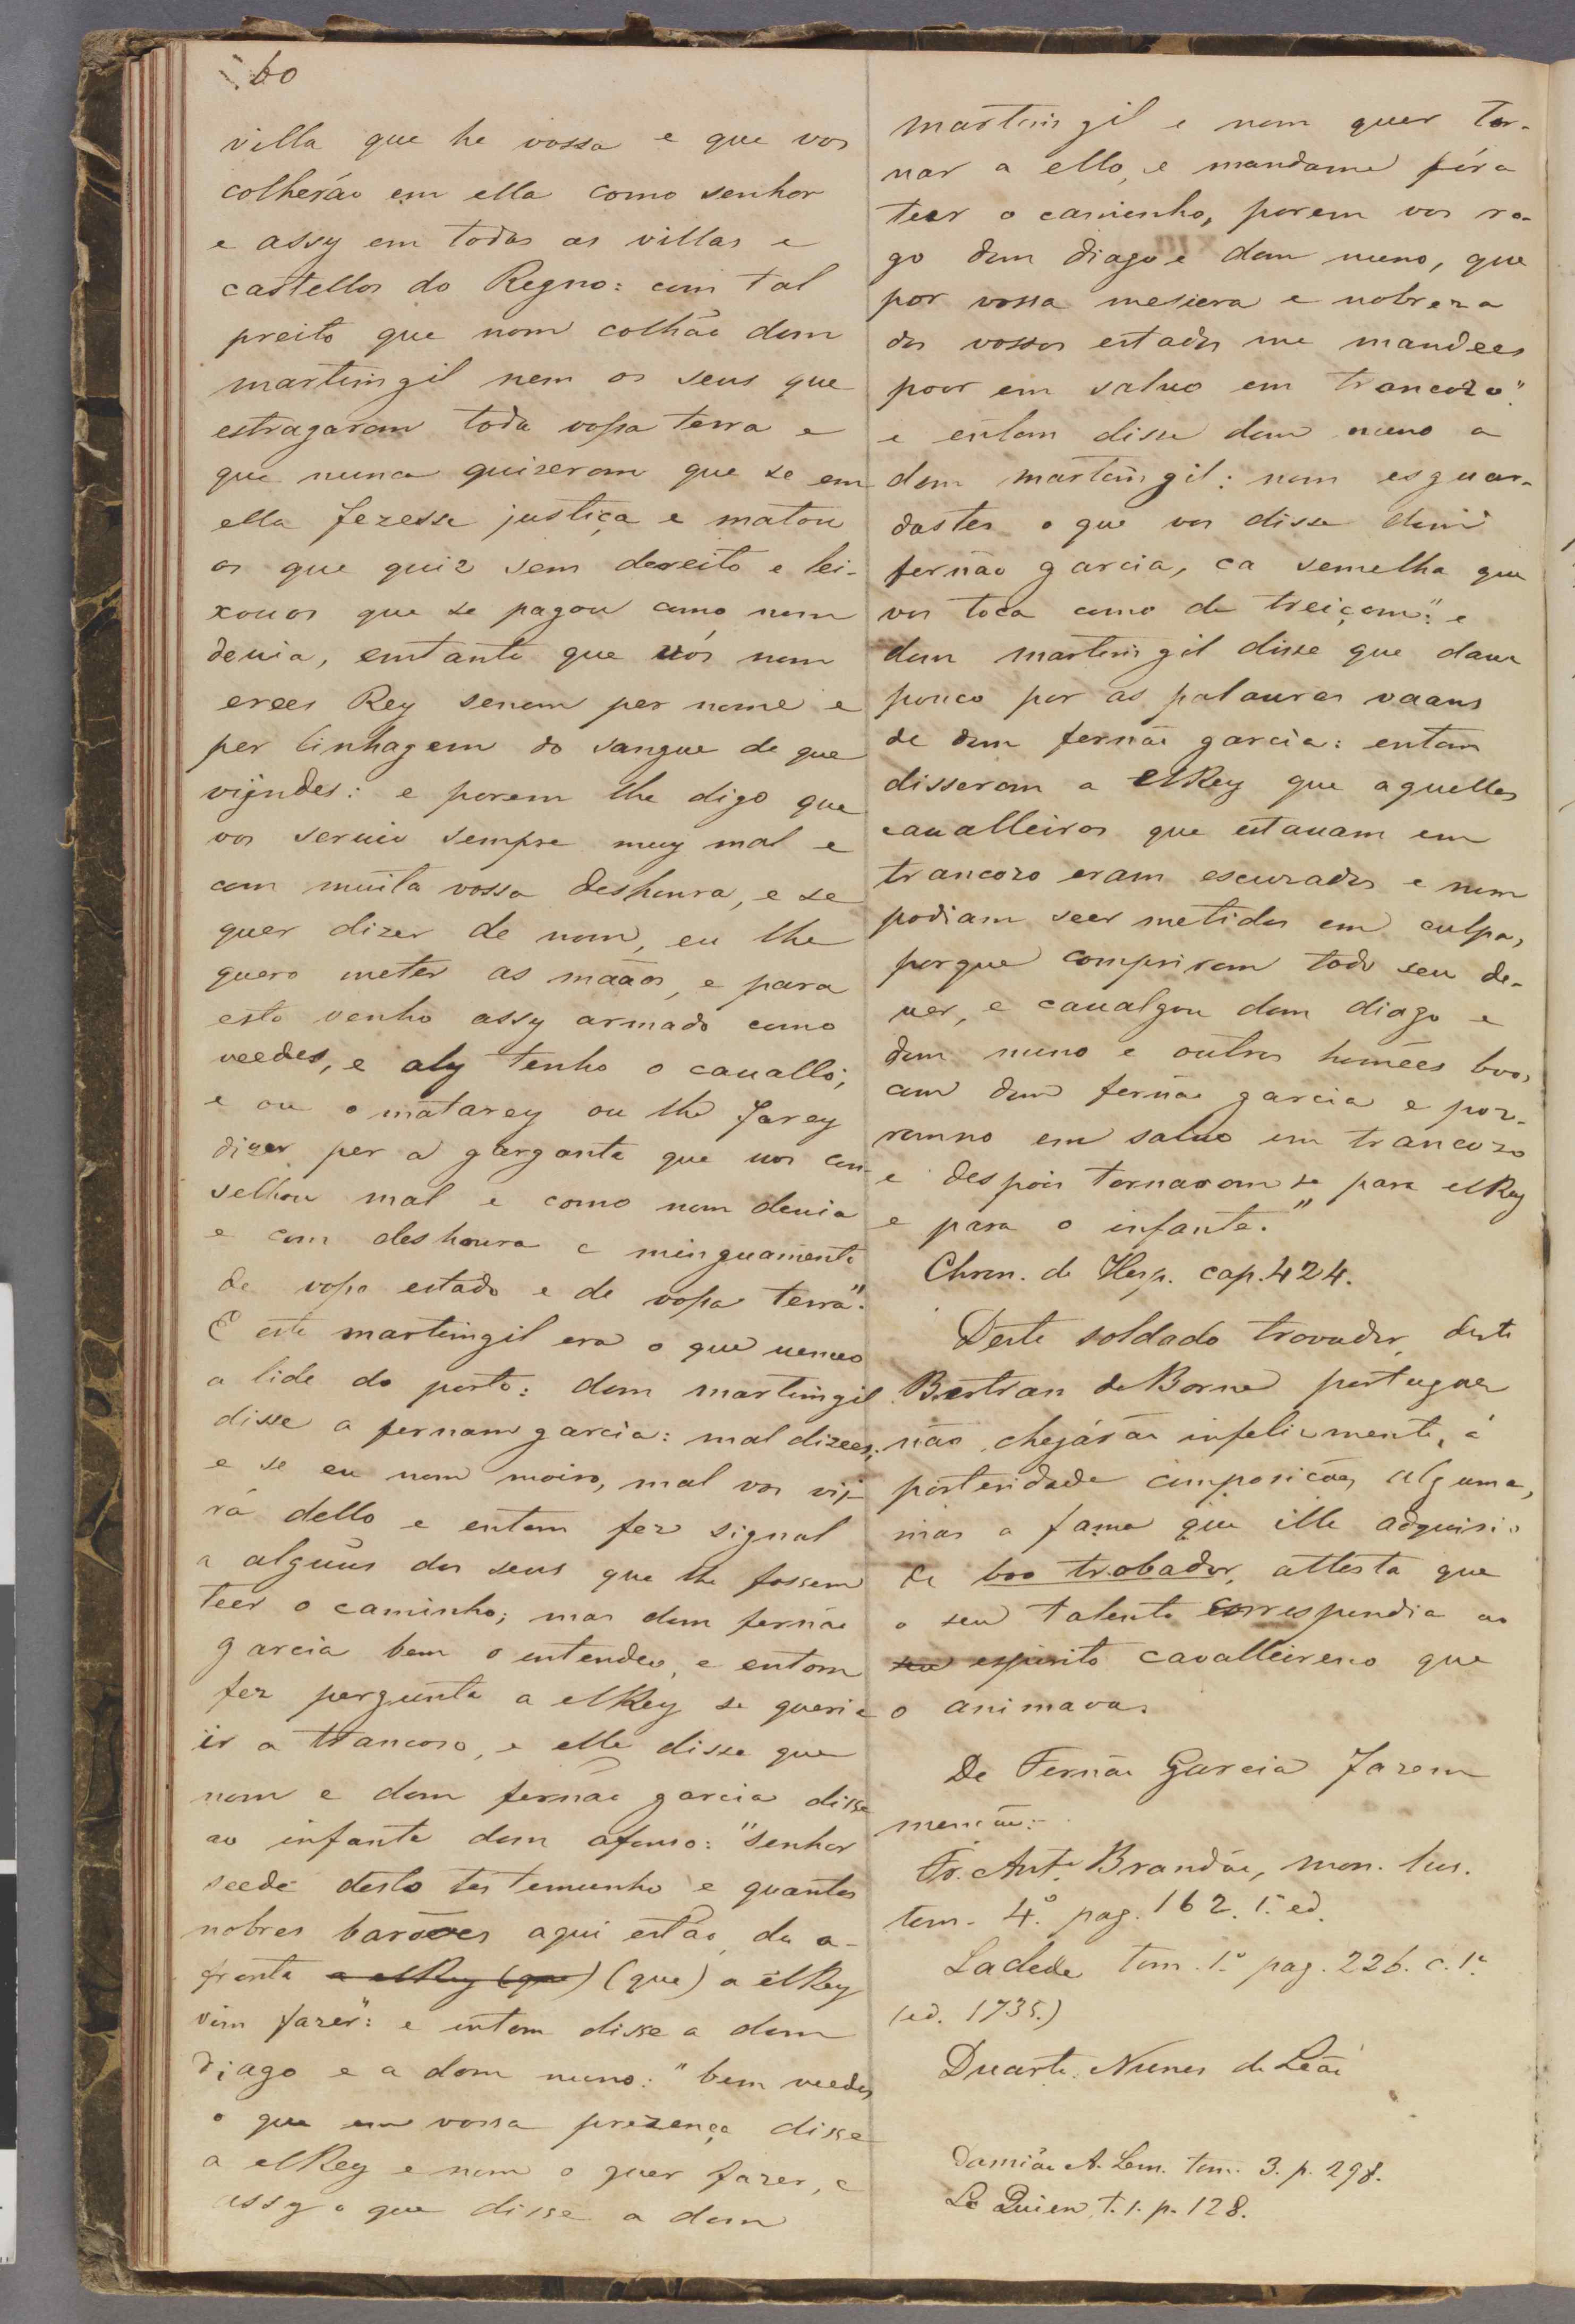 60
villa que he vossa e que vos
colherão em ella como senhor
e assy em todas as villas e
castellos do Regno: com tal
preito que nom colhão dom
martimgil nem os seus que
estragaram toda vossa terra e
que nunca quizeram que se em
ella fezesse justiça e matou
os que quiz sem dereito e lei-
xouos que se pagou como nom
deuia, emtanto que uós nom
erees Rey senom per nome e
per linhagem do sangue de que
vijndes: e porem lhe digo que
vos seruio sempre muy mal e
com muita vossa deshonra, e se
quer dizer de nom, eu lhe
quero meter as mãaos, e para
esto venho assy armado como
veedes, e aly tenho o cauallo;
e ou o matarey ou lhe farey
dizer per a garganta que uos con-
selhou mal e como nom deuia
e com deshonra e minguamento
de vosso estado e de vossa terra".
E este martimgil era o que uenceo
a lide do porto: dom martimgil
disse a fernam garcia: mal dizees;
e se eu nom moiro, mal vos vij-
rá dello e entom fez signal
a alguũs dos seus que lhe fossem
teer o caminho; mas dom fernão
garcia bem o entendeo, e entom
fez pergunta a elRey se queria
ir a trancoso, e elle disse que
nom e dom fernão garcia disse
ao infante dom afonso: "Senhor
seede desto testemunho e quantos
nobres barões aqui estão, da a-
fronta a elRey (que) (que) a elRey
vim fazer": e entom disse a dom
diago e a dom nuno: "bem veedes
o que em vossa prezença disse
a elRey e nom o quer fazer, e
assy o que disse a dom
martim gil e nom quer tor-
nar a ello, e mandame fóra
teer o caminho, porem vos ro-
go dom diago e dom nuno, que
por vossa mesura e nobreza
dos vossos estados me mandees
poer em saluo em trancozo".
e entom disse dom nuno a
dom martimgil: nom esguar-
dastes o que vos disse dom
fernão garcia, ca semelha que
vos toca como de treiçom": e
dom martim gil disse que daua
pouco por as palauras vaans
de dom fernão garcia: entom
disserom a elRey que aquelles
caualleiros que estauam em
trancozo eram escuzados e nom
podiam seer metidos em culpa,
porque comprirom todo seu de-
uer, e caualgou dom diago e
dom nuno e outros homẽes boos
com dom fernão garcia e poz-
romno em saluo em trancozo
e despois tornarom se para elRey
e para o infante."
Chron. de Hesp. cap. 424.
Deste soldado trovador, deste
Bertran de Borne portuguez
não chegárão infelizmente á
posteridade composição alguma,
mas a fama que elle adquirio
de boo trobador, attesta que
o seu talento correspondia ao
seu espirito cavalleireso que
o animava.
De Fernão Garcia fazem
menção:
Fr. Ant.º Brandão, mon. lus.
tom. 4.º pag. 162. 1.ª ed.
Ladede tom. 1.º pag. 226. c. 1.ª
(ed. 1735.)
Duarte Nunes de Leão
Damião A. Lem. tom. 3. p. 298.
Le Quien, t. 1. p. 128.